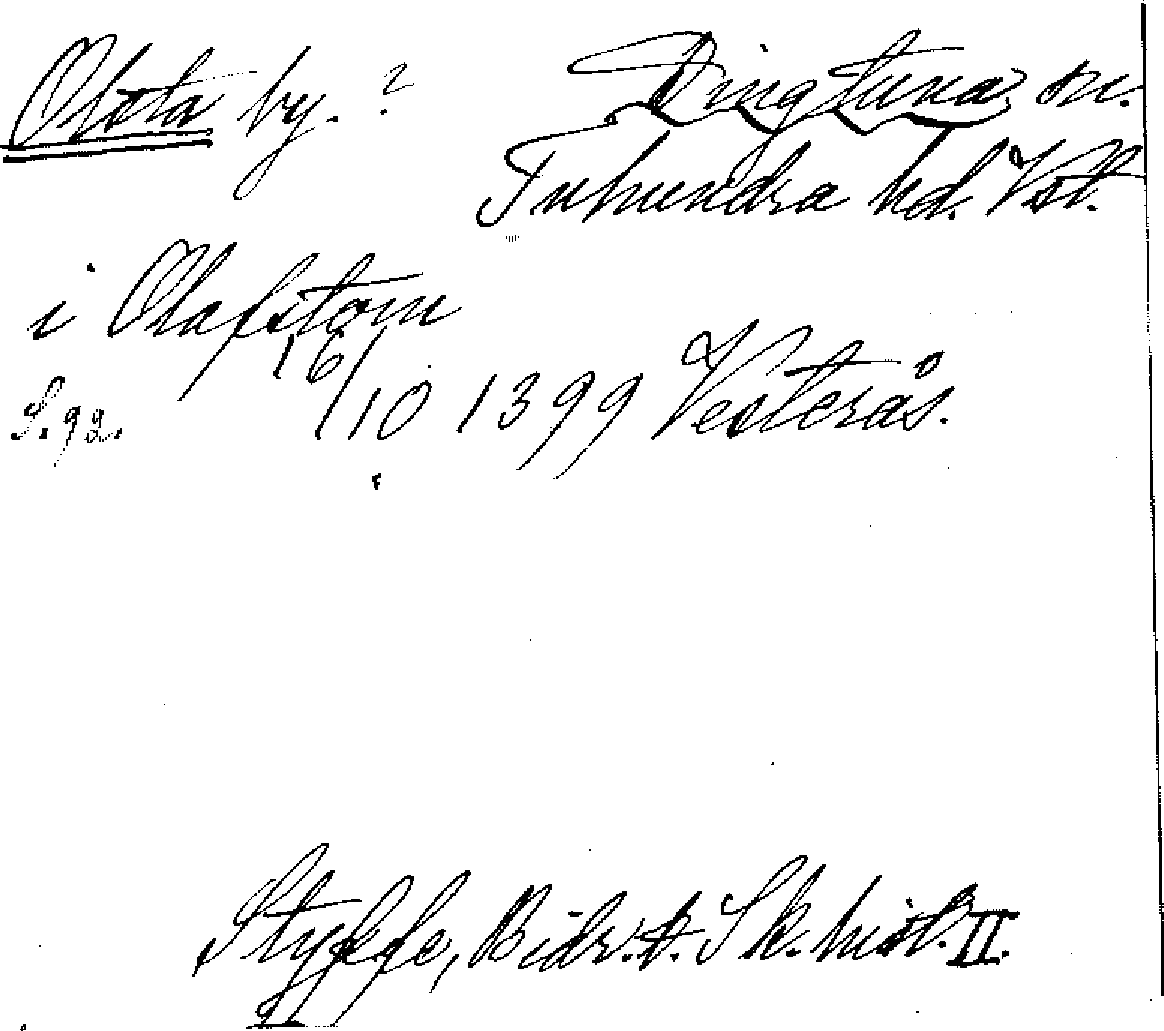 Olsta by. ? Dingtuna sn.
Tuhundra hd. Vstl.
i Olafstom
S. 92. 16/10 1399 Vesterås.
Styffe, Bidr. t. Sk. hist. II.